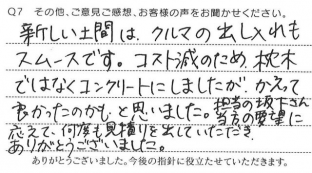 Q7 その他、ご意見ご感想、お客様の声をお聞かせください。
新しい土間は、クルマの出し入れも
スムースです。コスト減のため、枕木
ではなくコンクリートにしましたが、かえって
良かったのかも、と思いました。担当の坂下さん
当方の要望に
応えて、何度も見積りを出していただき、
ありがとうございました。
ありがとうございました。今後の指針に役立たせていただきます。